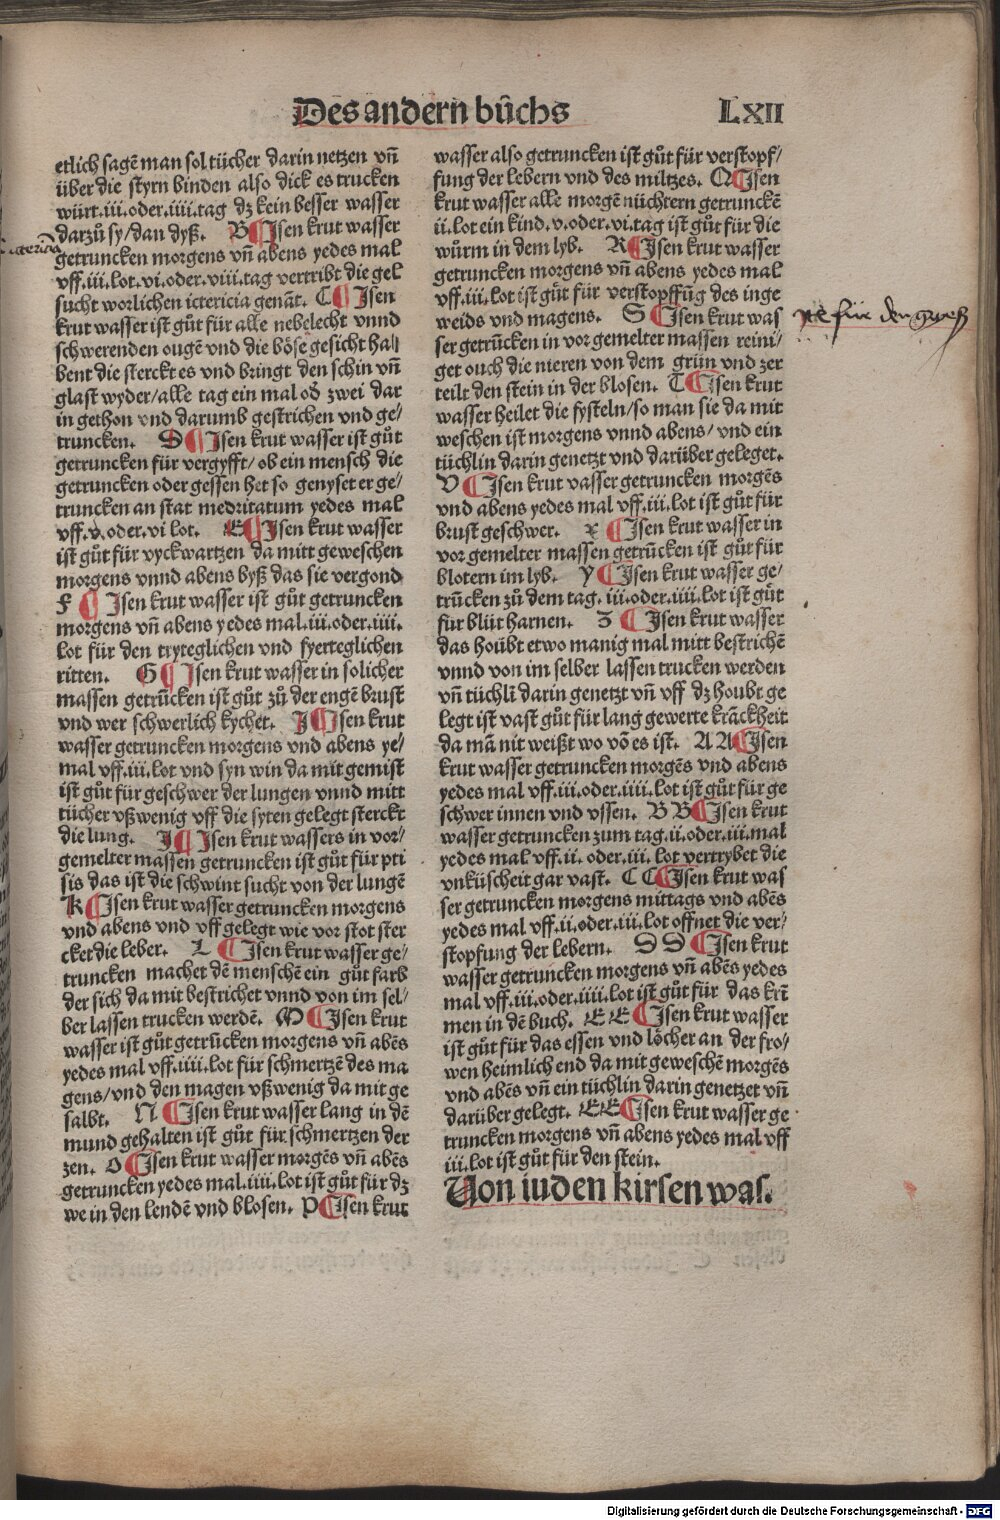 Des andern bůchs LXII
etlich sagē man sol tücher darin netzen vñ
über die styrn binden also dick es trucken
würt.iii.oder.iiii.tag dz kein besser wasser
darzů sy/dan dyß. B ¶ Isen krut wasser
getruncken morgens vñ abens yedes mal
vff.iii.lot.vi.oder.viii.tag vertribt die gel
sucht worlichen ictericia genāt. C ¶ Isen
krut wasser ist gůt für alle nebelecht vnnd
schwerenden ougē vnd die böse gesicht hal
bent die sterckt es vnd bringt den schin vñ
glast wyder/alle tag ein mal od zwei dar
in gethon vnd darumb gestrichen vnd ge/
truncken. D ¶ Isen krut wasser ist gůt
getruncken für vergyfft/ob ein mensch die
getruncken oder gessen het so genyset er ge/
truncken an stat medritatum yedes mal
vff.v.oder.vi lot. E ¶ Isen krut wasser
ist gůt für vyckwartzen da mitt geweschen
morgens vnnd abens byß das sie vergond
F ¶ Isen krut wasser ist gůt getruncken
morgens vñ abens yedes mal.iii.oder.iiii.
lot für den tryteglichen vnd fyerteglichen
ritten. G ¶ Isen krut wasser in solicher
massen getrūcken ist gůt zů der engē brust
vnd wer schwerlich kychet. I ¶ Isen krut
wasser getruncken morgens vnd abens ye/
mal vff.iii.lot vnd syn win da mit gemist
ist gůt für geschwer der lungen vnnd mitt
tücher vßwenig vff die syten gelegt sterckt
die lung. J ¶ Isen krut wassers in vor/
gemelter massen getruncken ist gůt für pti
sis das ist die schwint sucht von der lungē
K ¶ Isen krut wasser getruncken morgens
vnd abens vnd vff gelegt wie vor stot ster
cket die leber. L ¶ Isen krut wasser ge/
truncken machet dē menschē ein gůt farb
der sich da mit bestrichet vnnd von im sel/
ber lassen trucken werdē. M ¶ Isen krut
wasser ist gůt getrūcken morgens vñ abēs
yedes mal vff.iiii.lot für schmertzē des ma
gens/vnd den magen vßwenig da mit ge
salbt. N ¶ Isen krut wasser lang in dē
mund gehalten ist gůt für schmertzen der
zen. O ¶ Isen krut wasser morgēs vñ abēs
getruncken yedes mal.iiii.lot ist gůt für dz
we in den lendē vnd blosen. P ¶ Isen krut
wasser also getruncken ist gůt für verstopf/
fung der lebern vnd des miltzes. Q ¶ Isen
krut wasser alle morgē nüchtern getrunckē
ii.lot ein kind.v.oder.vi.tag ist gůt für die
würm in dem lyb. R ¶ Isen krut wasser
getruncken morgens vñ abens yedes mal
vff.iii.lot ist gůt für verstopffūg des inge
weids vnd magens. S ¶ Isen krut was
ser getrūcken in vor gemelter massen reini/
get ouch die nieren von dem grün vnd zer
teilt den stein in der blosen. T ¶ Isen krut
wasser heilet die fysteln/so man sie da mit
weschen ist morgens vnnd abens/vnd ein
tüchlin darin genetzt vnd darüber geleget.
V ¶ Isen krut vasser getruncken morgēs
vnd abens yedes mal vff.iii.lot ist gůt für
brust geschwer. x ¶ Isen krut wasser in
vor gemelter massen getrūcken ist gůt für
blotern im lyb. Y ¶ Isen krut wasser ge/
trūcken zů dem tag.iii.oder.iiii.lot ist gůt
für blůt harnen. Z ¶ Isen krut wasser
das houbt etwo manig mal mitt bestrichē
vnnd von im selber lassen trucken werden
vñ tüchlī darin genetzt vñ vff dz houbt ge
legt ist vast gůt für lang gewerte krāckheit
da mā nit weißt wo vō es ist. A A ¶ Isen
krut wasser getruncken morgēs vnd abens
yedes mal vff.iii.oder.iiii.lot ist gůt für ge
schwer innen vnd vssen. B B ¶ Isen krut
wasser getruncken zum tag.ii.oder.iii.mal
yedes mal vff.ii.oder.iii.lot vertrybet die
vnküscheit gar vast. C C ¶ Isen krut was
ser getruncken morgens mittags vnd abēs
yedes mal vff.ii.oder.iii.lot offnet die ver/
stopfung der lebern. D D ¶ Isen krut
wasser getruncken morgens vñ abēs yedes
mal vff.iii.oder.iiii.lot ist gůt für das krī
men in dē buch. E E ¶ Isen krut wasser
ist gůt für das essen vnd löcher an der fro/
wen heimlich end da mit geweschē morgēs
vnd abēs vñ ein tüchlin darin genetzet vñ
darüber gelegt. E E ¶ Isen krut wasser ge
truncken morgens vñ abens yedes mal vff
iii.lot ist gůt für den stein.
Von iuden kirsen was.
für den gryeß
Digitalisierung gefördert durch die Deutsche Forschungsgemeinschaft - DFG